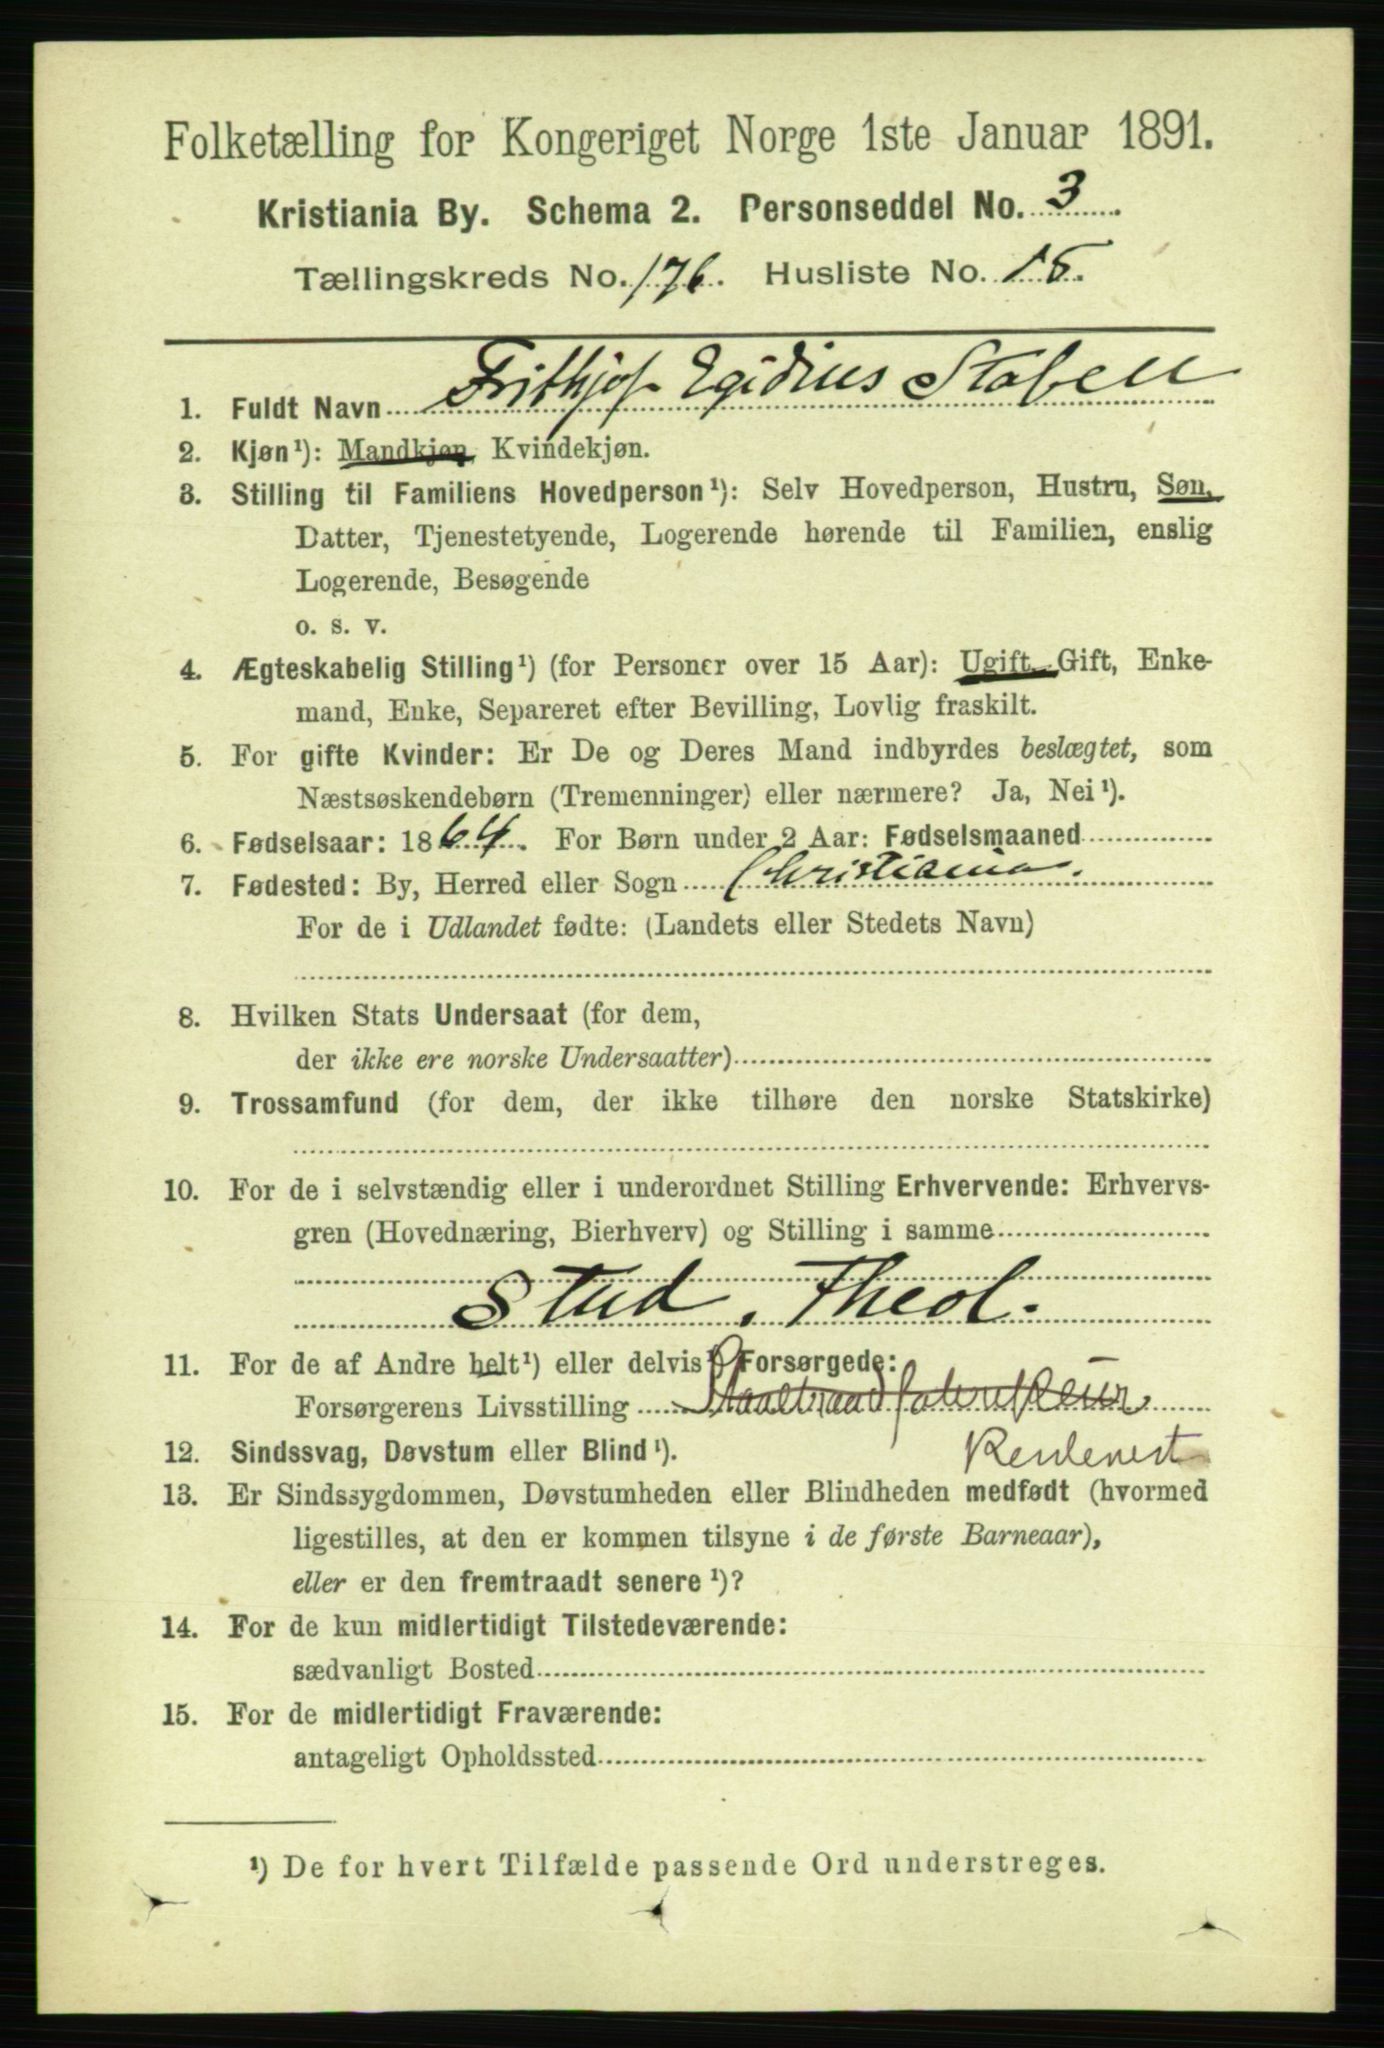 Folketælling for Kongeriget Norge 1ste Januar 1891.
Kristiania By. Schema 2. Personseddel No. 3
Tællingskreds No. 176. Husliste No. 15.
1. Fuldt Navn Frithjof Egidius Stabell
2. Kjøn¹): Mandkjøn, Kvindekjøn.
3. Stilling til Familiens Hovedperson¹): Selv Hovedperson, Hustru, Søn,
Datter, Tjenestetyende, Logerende hørende til Familien, enslig
Logerende, Besøgende
o. s. v.
4. Ægteskabelig Stilling¹) (for Personer over 15 Aar): Ugift, Gift, Enke-
mand, Enke, Separeret efter Bevilling, Lovlig fraskilt.
5. For gifte Kvinder: Er De og Deres Mand indbyrdes beslægtet, som
Næstsøskendebørn (Tremenninger) eller nærmere? Ja, Nei¹).
6. Fødselsaar: 1864. For Børn under 2 Aar: Fødselsmaaned
7. Fødested: By, Herred eller Sogn Christiania.
For de i Udlandet fødte: (Landets eller Stedets Navn)
8. Hvilken Stats Undersaat (for dem,
der ikke ere norske Undersaatter)
9. Trossamfund (for dem, der ikke tilhøre den norske Statskirke)
10. For de i selvstændig eller i underordnet Stilling Erhvervende: Erhvervs-
gren (Hovednæring, Bierhverv) og Stilling i samme
Stud. Theol.
11. For de af Andre helt¹) eller delvis¹) Forsørgede:
Forsørgerens Livsstilling
12. Sindssvag, Døvstum eller Blind¹).
13. Er Sindssygdommen, Døvstumheden eller Blindheden medfødt (hvormed
ligestilles, at den er kommen tilsyne i de første Barneaar),
eller er den fremtraadt senere¹)?
14. For de kun midlertidigt Tilstedeværende:
sædvanligt Bosted
15. For de midlertidigt Fraværende:
antageligt Opholdssted
¹) De for hvert Tilfælde passende Ord understreges.